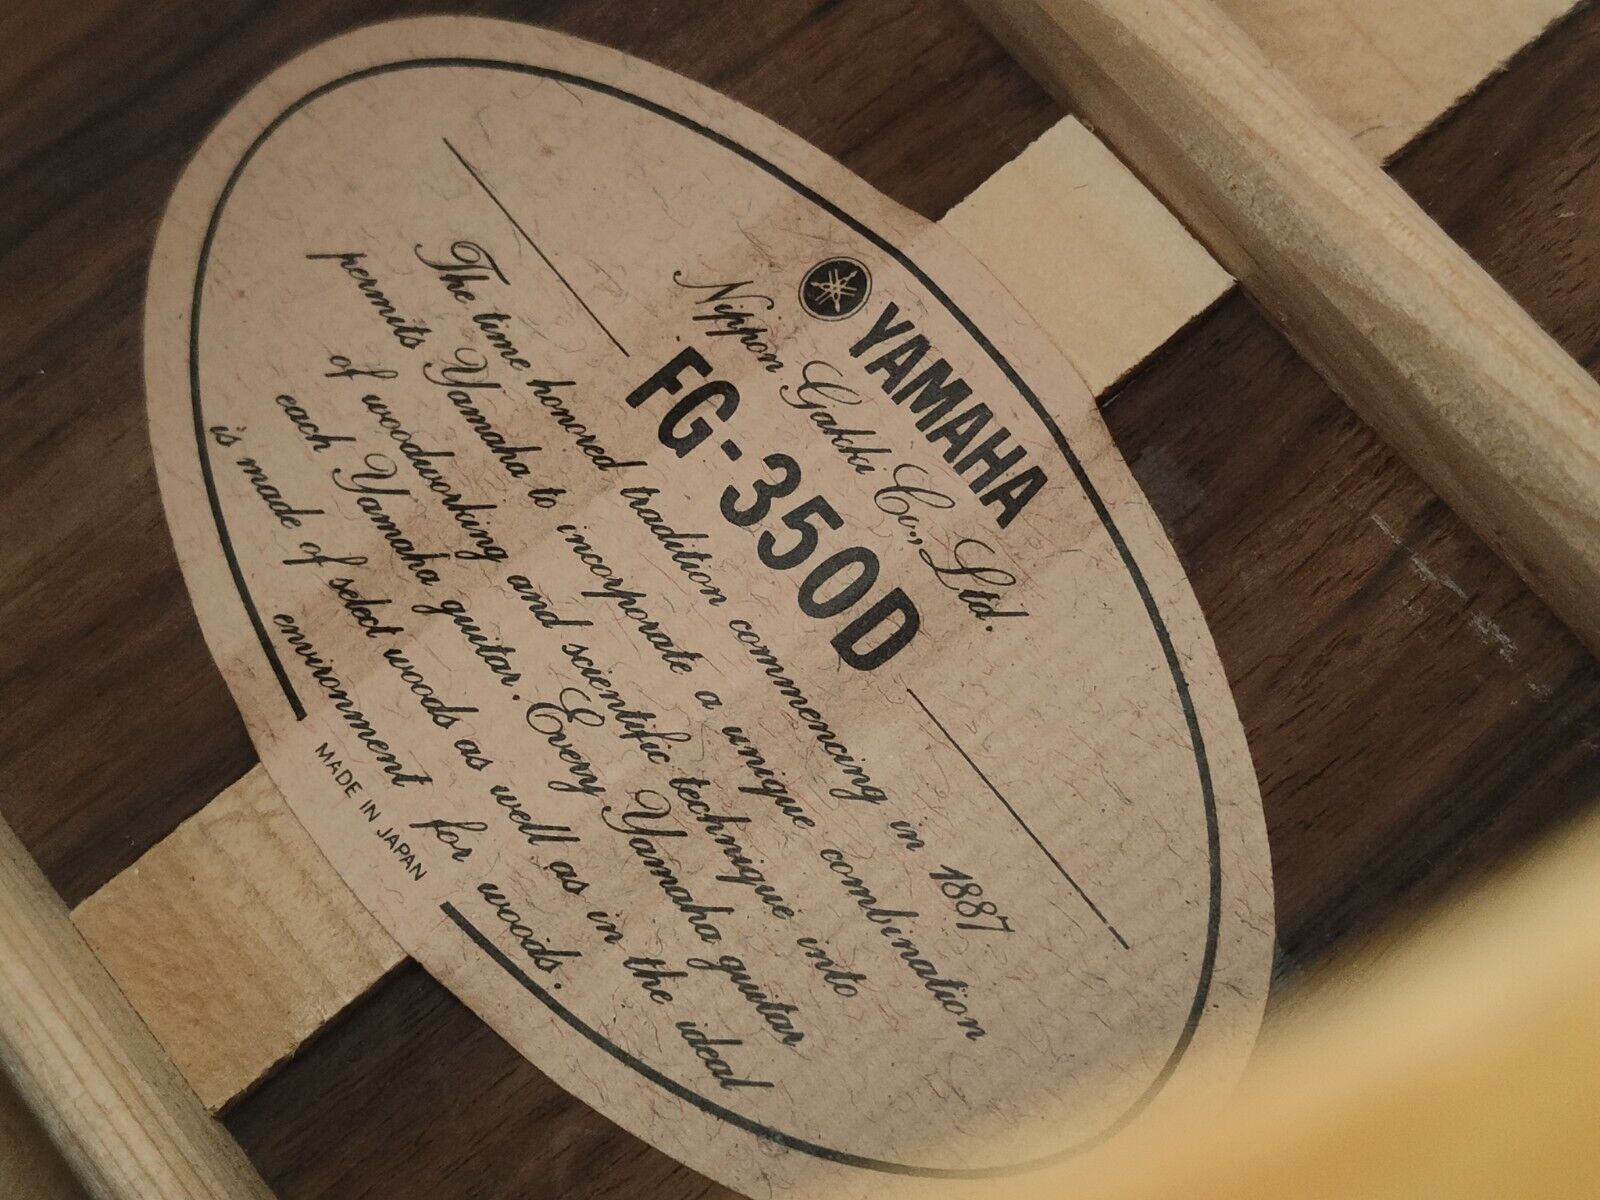 YAMAHA
Nippon Gakki Co., Ltd.
FG-350D
The time honored tradition commencing in 1887
permits Yamaha to incorporate a unique combination
of woodworking and scientific technique into
each Yamaha guitar. Every Yamaha guitar
is made of select woods as well as in the ideal
environment for woods.
MADE IN JAPAN